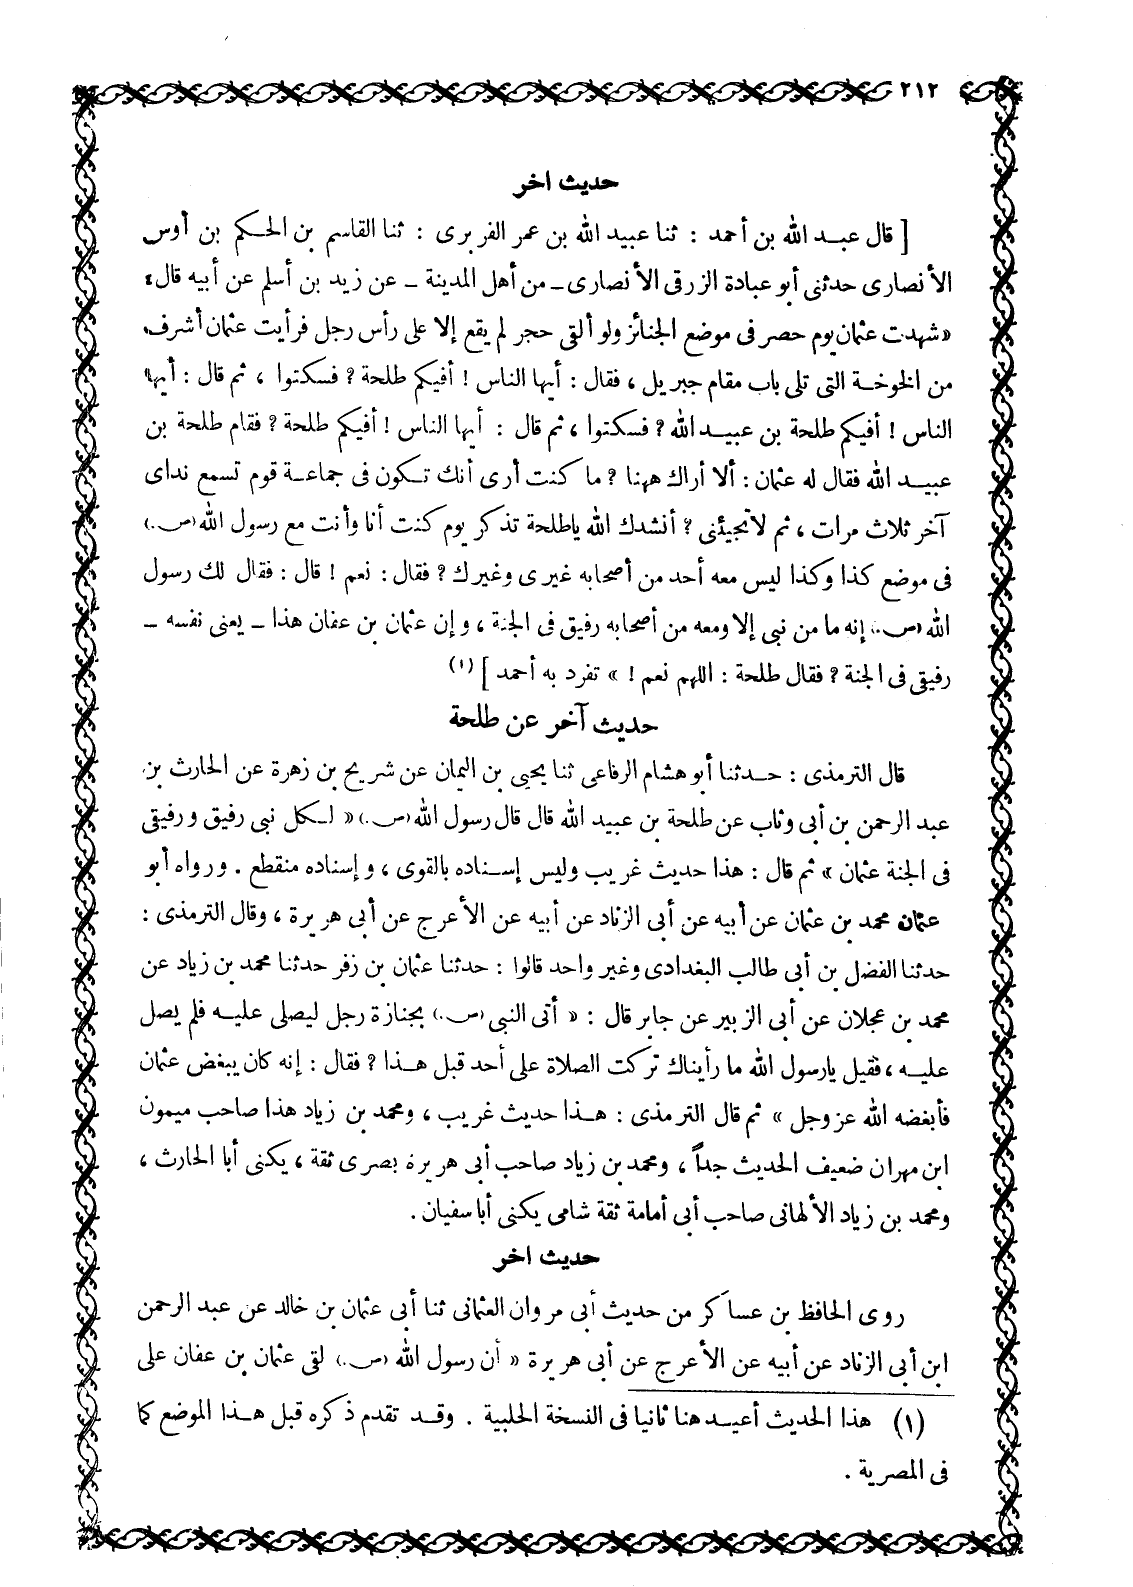 ٢١٢
حديث اخر
[ قال عبد الله بن أحمد : ثنا عبيد الله بن عمر الفربرى : ثنا القاسم بن الحكم بن أوس
الأنصارى حدثنى أبو عبادة الزرقى الأنصارى ـ من أهل المدينة ـ عن زيد بن أسلم عن أبيه قال :
« شهدت عثمان يوم حصر فى موضع الجنائز ولو ألقى حجر لم يقع إلا على رأس رجل فرأيت عثمان أشرف
من الخوخة التى تلى باب مقام جبريل ، فقال : أيها الناس ! أفيكم طلحة ? فسكتوا ، ثم قال : أيها
الناس ! أفيكم طلحة بن عبيد الله ? فسكتوا ، ثم قال : أيها الناس ! أفيكم طلحة ? فقام طلحة بن
عبيد الله فقال له عثمان : ألا أراك ههنا ? ما كنت أرى أنك تكون فى جماعة قوم تسمع نداى
آخر ثلاث مرات ، ثم لا تجيئنى ? أنشدك الله ياطلحة تذكر يوم كنت أنا وأنت مع رسول الله (ص.)
فى موضع كذا وكذا ليس معه أحد من أصحابه غيرى وغيرك ? فقال : نعم ! قال : فقال لك رسول
الله (ص.) إنه ما من نبى إلا ومعه من أصحابه رفيق فى الجنة ، و إن عثمان بن عفان هذا ـ يعنى نفسه ـ
رفيقى فى الجنة ? فقال طلحة : اللهم نعم ! » تفرد به أحمد ] (١)
حديث آخر عن طلحة
قال الترمذى : حدثنا أبو هشام الرفاعى ثنا يحيى بن اليمان عن شريح بن زهرة عن الحارث بن
عبد الرحمن بن أبى وثاب عن طلحة بن عبيد الله قال قال رسول الله (ص.) « لكل نبى رفيق و رفيقى
فى الجنة عثمان » ثم قال : هذا حديث غريب وليس إسناده بالقوى ، و إسناده منقطع . و رواه أبو
عثمان محمد بن عثمان عن أبيه عن أبى الزناد عن أبيه عن الأعرج عن أبى هريرة ، وقال الترمذى :
حدثنا الفضل بن أبى طالب البغدادى وغير واحد قالوا : حدثنا عثمان بن زفر حدثنا محمد بن زياد عن
محمد بن عجلان عن أبى الزبير عن جابر قال : « أتى النبى (ص.) بجنازة رجل ليصلى عليه فلم يصل
عليه ، فقيل يارسول الله ما رأيناك تركت الصلاة على أحد قبل هذا ? فقال : إنه كان يبغض عثمان
فأبغضه الله عز وجل » ثم قال الترمذى : هذا حديث غريب ، ومحمد بن زياد هذا صاحب ميمون
ابن مهران ضعيف الحديث جداً ، ومحمد بن زياد صاحب أبى هريرة بصرى ثقة ، يكنى أبا الحارث ،
ومحمد بن زياد الألهانى صاحب أبى أمامة ثقة شامى يكنى أبا سفيان .
حديث اخر
روى الحافظ بن عساكر من حديث أبى مروان العثمانى ثنا أبى عثمان بن خالد عن عبد الرحمن
ابن أبى الزناد عن أبيه عن الأعرج عن أبى هريرة « أن رسول الله (ص.) لقى عثمان بن عفان على
(١) هذا الحديث أعيد هنا ثانيا فى النسخة الحلبية . وقد تقدم ذكره قبل هذا الموضع كما
فى المصرية .